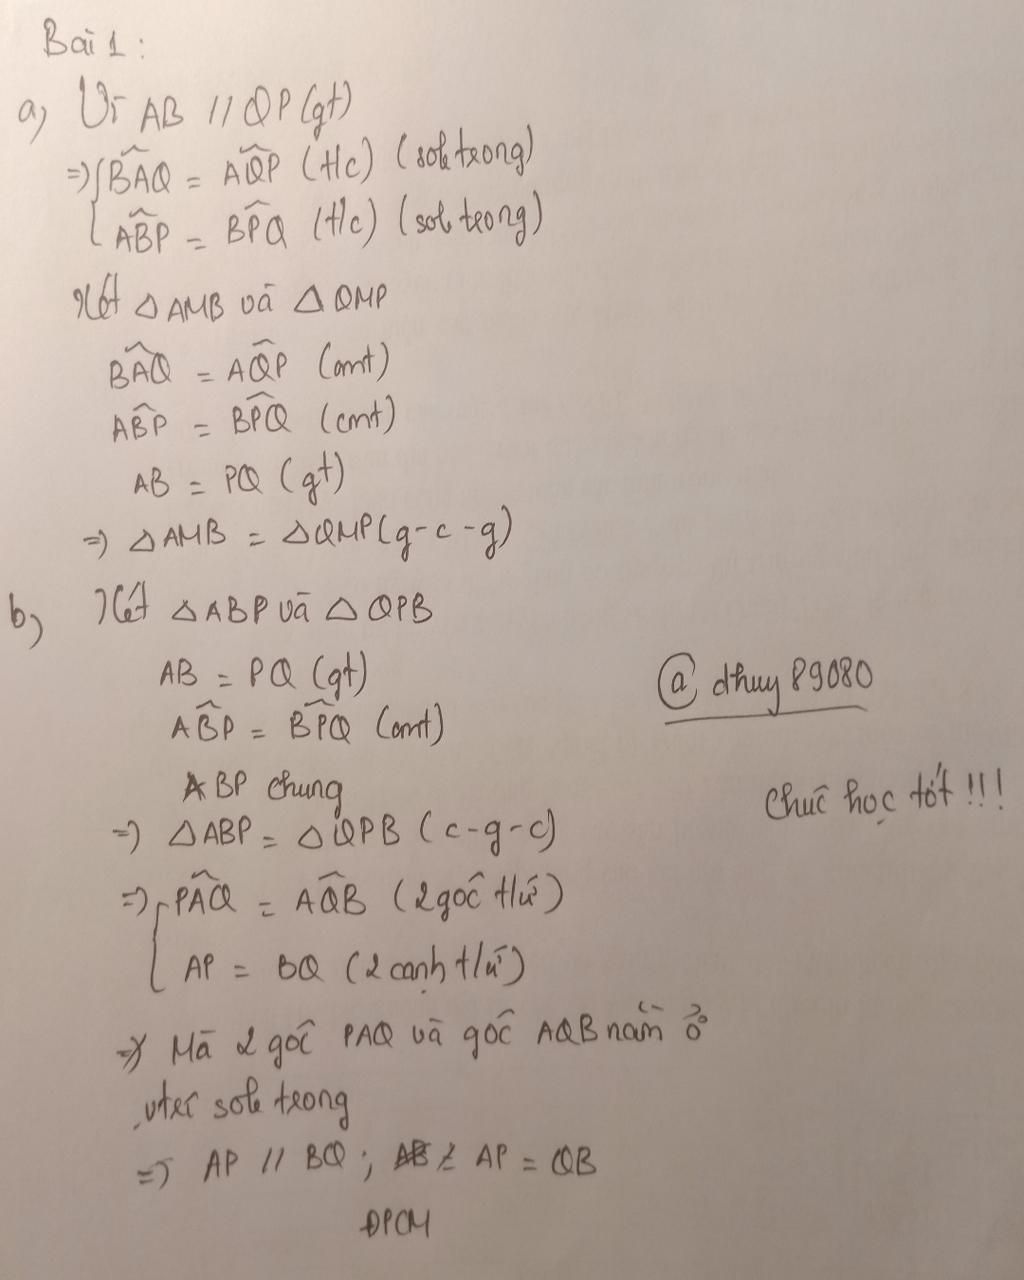 Bài 1:
a) Vì AB // QP (gt)
=> { BÂQ = AQ̂P (t/c) (sole trong)
AB̂P = BP̂Q (t/c) (sole trong)
Xét △AMB và △QMP
BÂQ = AQ̂P (cmt)
AB̂P = BP̂Q (cmt)
AB = PQ (gt)
=> △AMB = △QMP (g-c-g)
b) Xét △ABP và △QPB
AB = PQ (gt)
AB̂P = BP̂Q (cmt)
BP chung
=> △ABP = △QPB (c-g-c)
=> { PÂQ = AQ̂B (2 góc t/ứ)
AP = BQ (2 cạnh t/ứ)
Mà 2 góc PAQ và góc AQB nằm ở
vtrí sole trong
=> AP // BQ ; AP = QB
ĐPCM
@ dthuy 89080
Chúc học tốt !!!